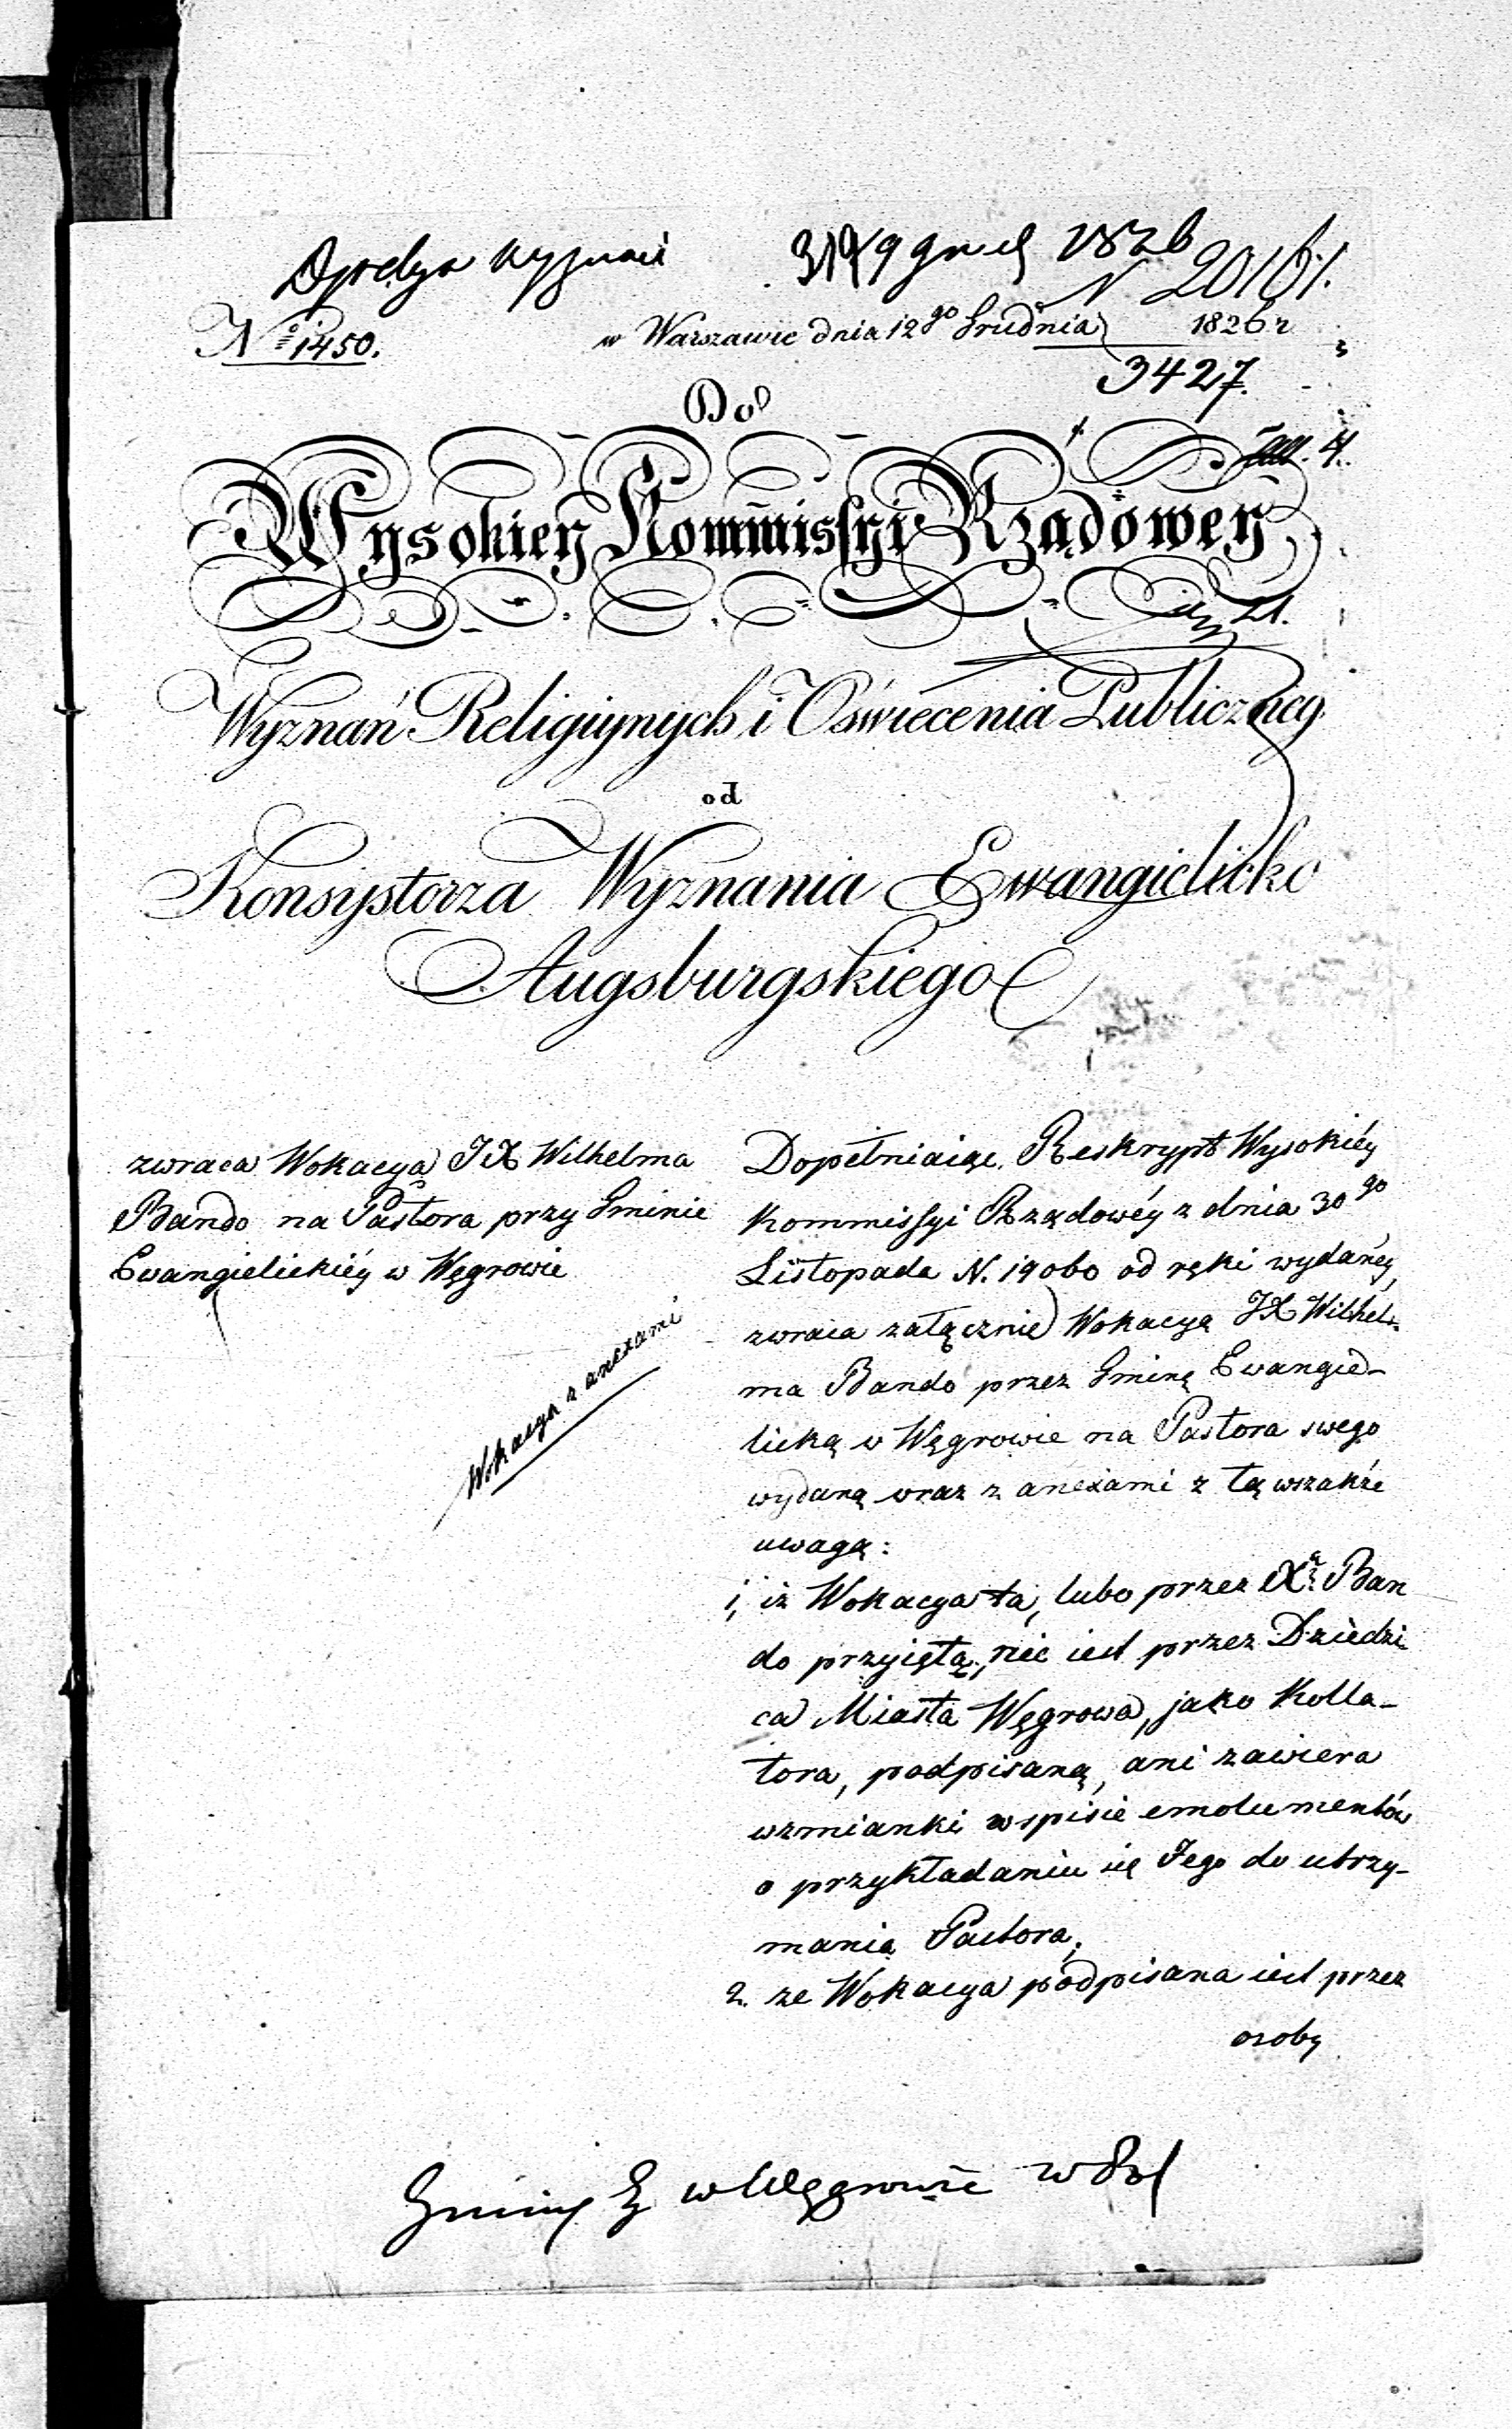 grud 1826
N 20161.
No 1450.
w Warszawie dnia 12go Grudnia 1826 r
3427.
Do
4.
Wysokiey Kommissyi Rządowey
21.
Wyznań Religiynych i Oświecenia Publiczney
od
Konsystorza Wyznania Ewangielicko
Augsburgskiego
zwraca Wokacyą JX Wilhelma
Bando na Pastora przy Gminie
Ewangielickiéy w Węgrowie
Wokacya z anexami
Dopełniaiąc Reskrypt Wysokiéy
Kommissyi Rządowéy z dnia 30go
Listopada N. 19060 od ręki wydanéy,
zwraca załącznie Wokacyą JX Wilhel-
ma Bando przez Gminę Ewangie-
licką w Węgrowie na Pastora swego
wydaną wraz z anexami z tą wszakże
uwagą:
1, iż Wokacya ta, lubo przez Xa Ban
do przyiętą, nie iest przez Dziedzi-
ca Miasta Węgrowa, jako Kolla-
tora, podpisaną, ani zawiera
wzmianki w spisie emolumentów
o przykładaniu się Jego do utrzy-
mania Pastora;
2. że Wokacya podpisana iest przez
osoby
Gminy E w Węgrowie